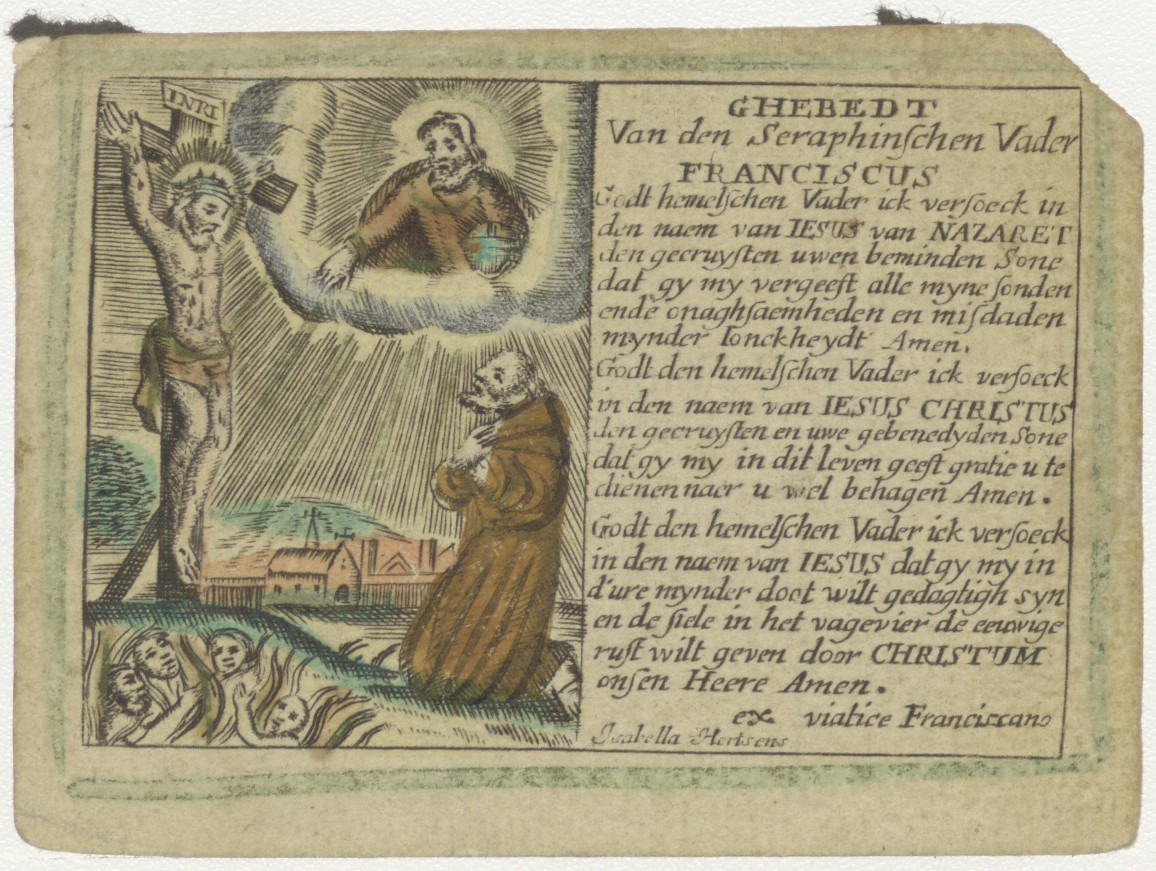 INRI
GHEBEDT
Van den Seraphinſchen Vader
FRANCISCUS
Godt hemelſchen Vader ick verſoeck in
den naem van IESUS van NAZARET
den gecruyſten uwen beminden Sone
dat gy my vergeeft alle myne ſonden
ende onaghſaemheden en miſdaden
mynder Ionckheydt Amen.
Godt den hemelſchen Vader ick verſoeck
in den naem van IESUS CHRISTUS
den gecruyſten en uwe gebenedyden Sone
dat gy my in dit leven geeft gratie u te
dienen naer u wel behagen Amen.
Godt den hemelſchen Vader ick verſoeck
in den naem van IESUS dat gy my in
d'ure mynder doot wilt gedagtigh syn
en de ſiele in het vagevier de eeuwige
ruſt wilt geven door CHRISTUM
onſen Heere Amen.
ex viatice Franciscano
Isabella Hertsens